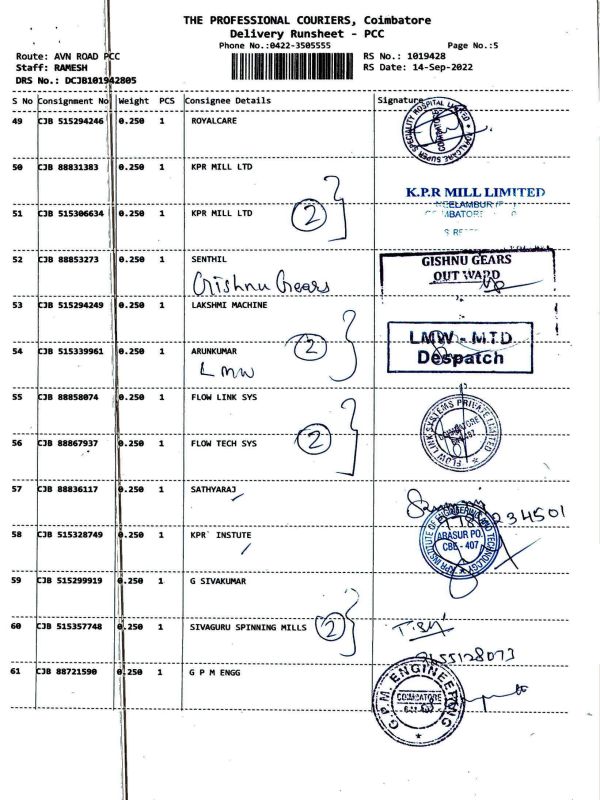 THE PROFESSIONAL COURIERS, Coimbatore
Delivery Runsheet - PCC
Phone No.:0422-3505555
Page No.:5
Route: AVN ROAD PCC
RS No.: 1019428
Staff: RAMESH
RS Date: 14-Sep-2022
DRS No.: DCJB101942805
S No Consignment No Weight PCS Consignee Details Signature
49 CJB 515294246 0.250 1 ROYALCARE
ROYALCARE SUPER SPECIALITY HOSPITAL LIMITED
COIMBATORE
50 CJB 88831383 0.250 1 KPR MILL LTD
K.P.R MILL LIMITED
NEELAMBUR
51 CJB 515306634 0.250 1 KPR MILL LTD
2
52 CJB 88853273 0.250 1 SENTHIL
Grishnu Gears
GISHNU GEARS
OUT WARD
53 CJB 515294249 0.250 1 LAKSHMI MACHINE
2
LMW - MTD
Despatch
54 CJB 515339961 0.250 1 ARUNKUMAR
LMW
55 CJB 88858074 0.250 1 FLOW LINK SYS
FLOW LINK SYSTEMS PRIVATE LIMITED
COIMBATORE
56 CJB 88867937 0.250 1 FLOW TECH SYS
2
57 CJB 88836117 0.250 1 SATHYARAJ
234501
58 CJB 515328749 0.250 1 KPR` INSTUTE
KPR INSTITUTE OF ENGINEERING AND TECHNOLOGY
ARASUR PO.
CBE - 407
59 CJB 515299919 0.250 1 G SIVAKUMAR
60 CJB 515357748 0.250 1 SIVAGURU SPINNING MILLS
2
61 CJB 88721590 0.250 1 G P M ENGG
G.P.M. ENGINEERING
COIMBATORE